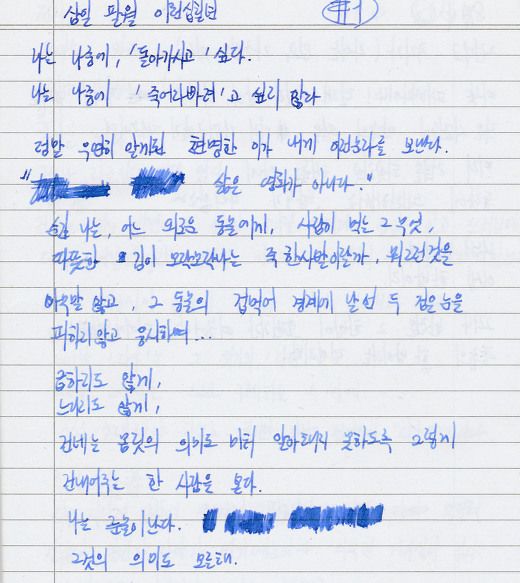 삼일 팔월 이천십칠년 #1
나는 나중에, '돌아가시고' 싶다.
나는 나중에 '죽어라바려'고 싶지 않다
정말 우연히 알게된 현명한 이가 내게 이런노라를 보냈다.
" 삶은 영화가 아니다."
나는, 어느 외로운 동물에게, 사람이 먹는 그 무엇,
따뜻한 김이 모락모락나는 죽 한사발이랄까, 뭐그런것을
아욱말 않고, 그 동물의 겁먹어 경계에 날 선 두 검은눈을
피하지않고 응시하며...
급하지도 않게,
느리지도 않게,
건네는 몸짓의 의미도 미처 알아채지 못하도록 그렇게
건네어주는 한 사람을 본다.
나는 눈물이난다.
그것의 의미도 모른채.